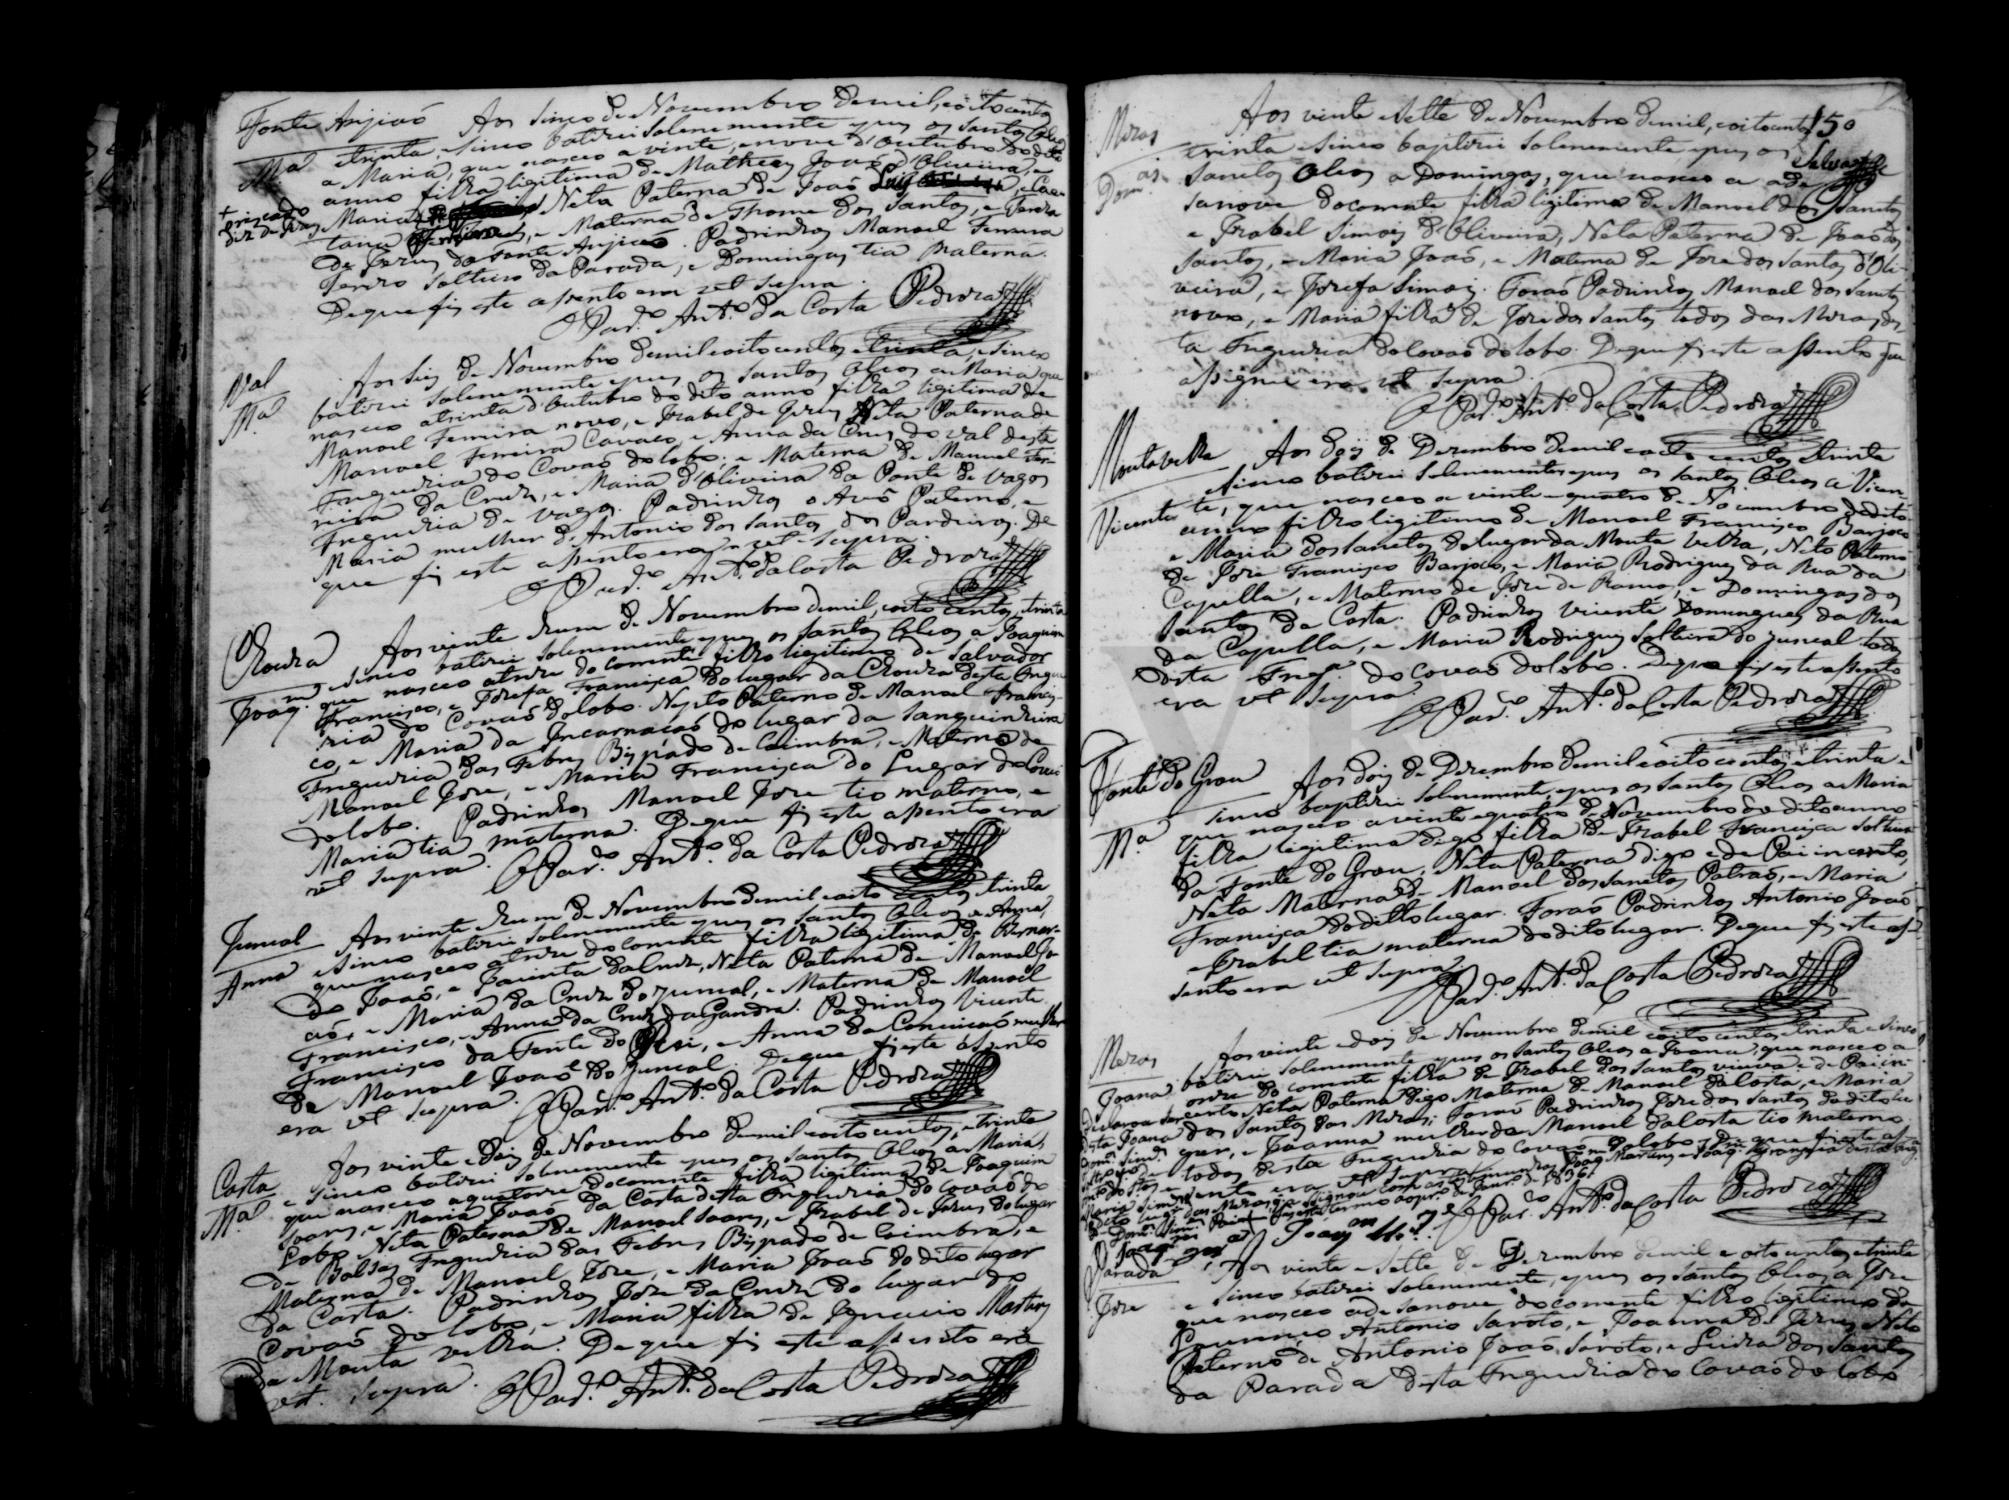 Fonte Anjiaõ Aos sinco de Novembro demil, eoitocentos
etrinta, esinco batizei solenemente epus os santos Oleos
Mª a Maria, que nasceo a vinte, enove d'Outubro do dito
anno filha legitima de Matheus Joaõ d'Oliveira, e
Maria Neta Paterna de Joaõ Luis
+ riscado
tana e Materna de Thome dos Santos, e Jozefa
de Jezus da Fonte Anjiaõ. Padrinhos Manoel Ferreira
solteiro da Parada, e Domingas tia materna.
Deque fis este assento era ut supra.
O Pad.º Ant.º da Costa Pedroza
Val Aos seis de Novembro demil eoitocentos etrinta, esinco
Mª batizei solenemente epus os santos Oleos a Maria que
nasceo atrinta d'Outubro do dito anno filha legitima de
Manoel Ferreira novo, e Izabel de Jezus Neta Paterna de
Manoel Ferreira Cavaco, e Anna da Crus do Val desta
Freguezia do Covaõ do lobo; e Materna de Manuel Fer-
reira da Crus, e Maria d'Oliveira da Ponte de Vagos
Freguezia de Vagos. Padrinhos o Avô Paterno, e
Maria mulher d'Antonio dos Santos dos Pardeiros. De
que fis este assento era ut supra.
O Pad.º Ant.º da Costa Pedroza
Chouza Aos vinte ehum de Novembro demil, eoito centos, etrinta
Joaq.m esinco batizei solenemente epus os santos Oleos a Joaquim
que nasceo atreze do corrente filho legitimo de Salvador
Francisco, e Jozefa Francisca do lugar da Chouza desta Fregue
zia do Covaõ do lobo. Neto Paterno de Manoel Francis-
co, e Maria da Incarnaçaõ do lugar da Sanguinheira
Freguezia das Febres Bispado de Coimbra, e Materno de
Manoel Joze, e Maria Francisca do Lugar do Covaõ
do lobo. Padrinhos Manoel Joze tio materno, e
Maria tia materna. Deque fis este assento era
ut supra. O Pad.º Ant.º da Costa Pedroza
Juncal Aos vinte ehum de Novembro demil eoito centos, etrinta
Anna esinco batizei solenemente epus os santos Oleos a Anna,
que nasceo atreze do corrente filha legitima de Bernar-
do Joaõ, e Jacinta da Crus, Neta Paterna de Manoel Jo-
aõ, e Maria da Crus do Juncal, e Materna de Manoel
Francisco, e Anna da Crus da Gandra. Padrinhos Vicente
Francisco da Fonte do , e Anna da Conceiçaõ mulher
de Manoel Joaõ do Juncal. Deque fis este assento
era ut supra. O Pad.º Ant.º da Costa Pedroza
Costa Aos vinte edois de Novembro demil eoito centos, etrinta
Mª e sinco batizei solenemente epus os santos Oleos a Maria,
que nasceo aquatorze do corrente filha legitima de Joaquim
Soares, e Maria Joaõ da Costa desta Freguezia do Covaõ do
Lobo Neta Paterna de Manoel Soares, e Izabel de Jezus do lugar
de Balsas Freguezia das Febres Bispado de Coimbra, e
Materna de Manoel Joze, e Maria Joaõ do dito lugar
da Costa. Padrinhos Joze da Crus do lugar do
Covaõ do lobo, e Maria filha de Ignacio Martins
da Mouta velha. De que fis este assento era
ut. supra. O Pad.º Ant.º da Costa Pedroza
150
Mezas Aos vinte esette de Novembro demil, eoitocentos
etrinta esinco baptizei solenemente epus os
Dom.as santos Oleos a Domingos, que nasceo a de
sanove docorrente filho legitimo de Manoel dos Santos
e Izabel Simoes d'Oliveira, Neto Paterno de Joaõ dos
Santos, e Maria Joaõ, e Materno de Joze dos Santos d'Oli-
veira, e Jozefa Simoes. Foraõ Padrinhos Manoel dos Santos
novo, e Maria filha de Joze dos Santos todos das Mezas des
ta Freguezia do Covaõ do lobo. Deque fis este assento que
assignei era ut supra.
O Pad.º Ant.º da Costa Pedroza
Moutavelha Aos dois de Dezembro demil eoito centos etrinta
esinco batizei solenemente epus os santos Oleos a Vicen-
Vicente te, que nasceo a vinte equatro de Novembro do dito
anno filho legitimo de Manoel Francisco Barjoco
e Maria dos Santos do lugar da Mouta Velha, Neto Paterno
de Joze Francisco Barjoco, e Maria Rodrigues da Rua da
Capella, e Materno de Joze de Ramos, e Domingas dos
Santos da Costa. Padrinhos Vicente Domingues da Rua
da Capella, e Maria Rodrigues solteira do Juncal todos
desta Freg.ª do Covaõ do lobo. Deque fis este assento
era ut supra.
O Pad.º Ant.º da Costa Pedroza
Fonte do Grou Aos dois de Dezembro demil eoito centos, etrinta e
sinco baptizei solenemente, epus os santos Oleos a Maria
Mª que nasceo avinte equatro de Novembro do dito anno
filha legitima digo filha de Izabel Francisca solteira
da Fonte do Grou, Neta Paterna digo e de Pai incerto,
Neta Materna de Manoel dos Santos Patraõ, e Maria
Francisca do ditto lugar. Foraõ Padrinhos Antonio Joaõ
e Izabel tia materna do dito lugar. Deque fis este as-
sento era ut supra.
O Pad.º Ant.º da Costa Pedroza
Mezas Aos vinte edois de Novembro demil eoito centos etrinta e sinco
Joana batizei solenemente epus os santos Oleos a Joana, que nasceo a
onze do corrente filha de Izabel dos Santos viuva e de Pai in-
certo Neta Paterna digo Materna de Manoel da Costa, e Maria
dos Santos das Mezas; Foraõ Padrinhos Joze dos Santos do dito lu-
gar, e Joanna mulher de Manoel da Costa tio materno
e todos desta Freguezia do Covaõ do lobo. De que fis este as-
sento era ut supra
O Pad.º Ant.º da Costa Pedroza
Parada Aos vinte e sette de Dezembro demil e oito centos, etrinta
Joze e sinco batizei solenemente, epus os santos Oleos a Joze
que nasceo a de sanove do corrente filho legitimo de
Lourenço Antonio Saroto, e Joanna de Jezus Neto
Paterno de Antonio Joaõ, Saroto, e Luiza dos Santos
da Parada desta Freguezia do Covaõ do Lobo